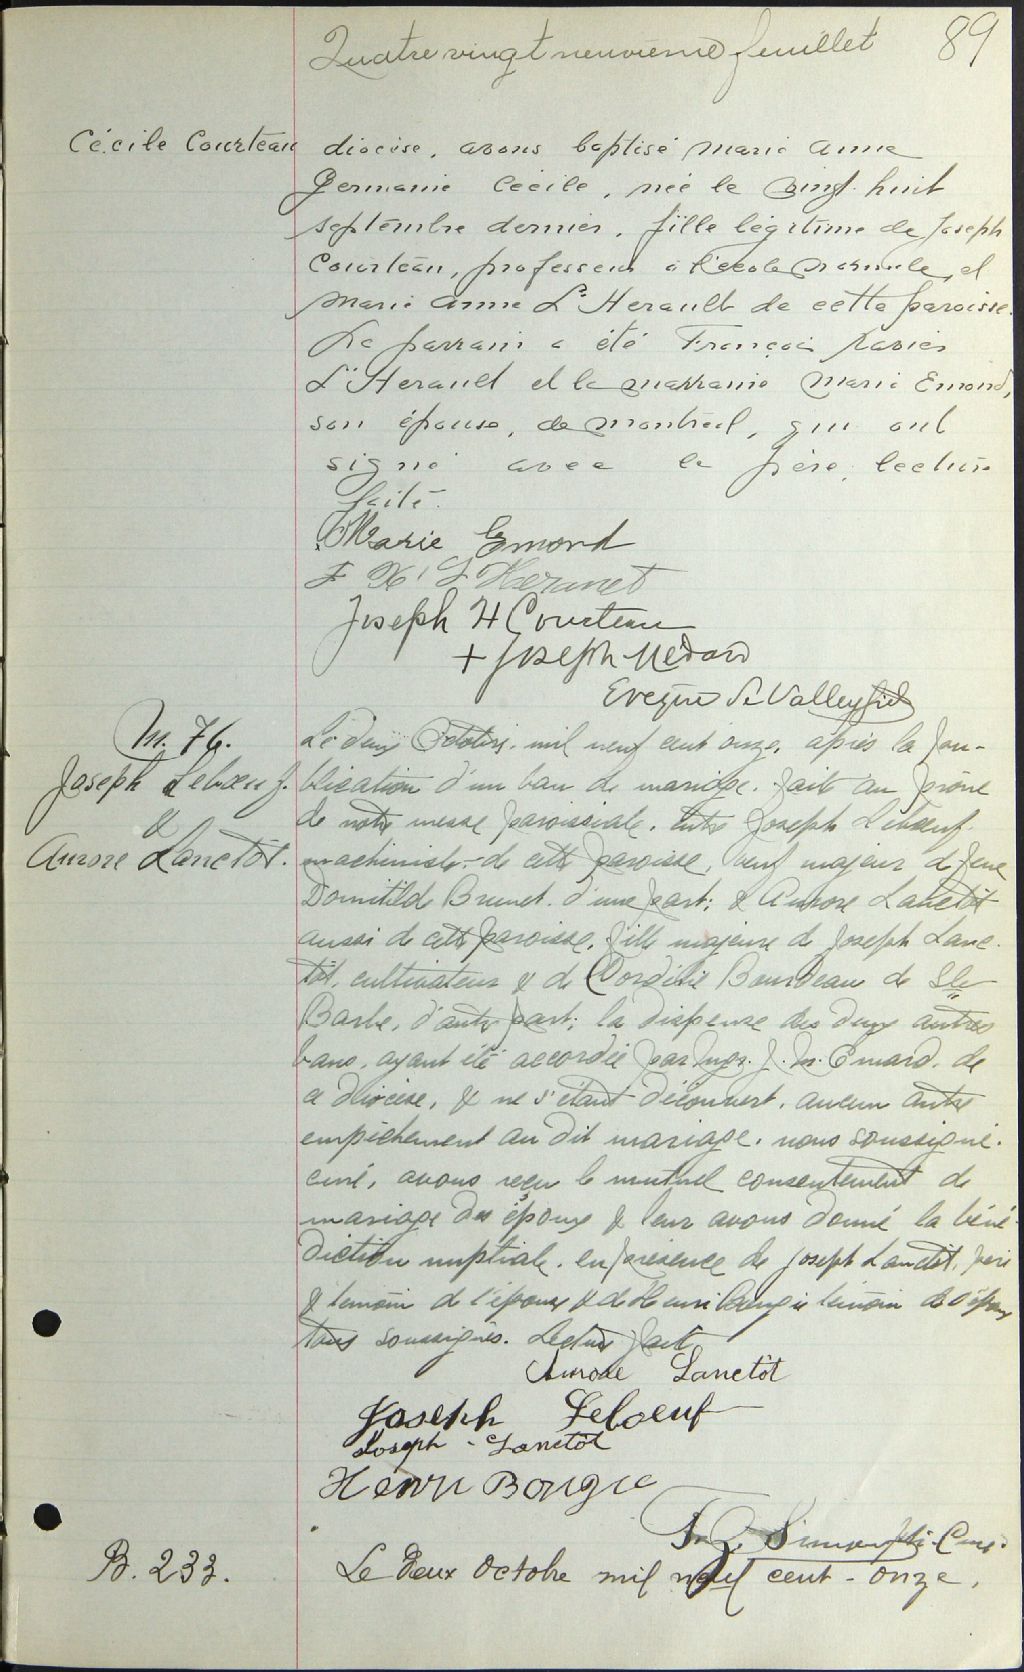 Quatre vingt neuvième feuillet 89
Cécile Courteau
diocèse, avons baptisé Marie Anne
Germanie Cécile, née le vingt huit
septembre dernier, fille légitime de Joseph
Courteau, professeur à l'école normale, et
Marie Anne L'Herault de cette paroisse.
Le parrain a été François Xavier
L'Herault et la marraine Marie Emond,
son épouse, de Montréal, qui ont
signé avec le père, lecture
faite.
Marie Emond
F X L'Herault
Joseph H Courteau
+ Joseph-Médard
Evêque de Valleyfield
M. 76.
Joseph Leboeuf.
&
Aurore Lanctôt.
Le deux Octobre, mil neuf cent onze, après la pu-
blication d'un ban de mariage, fait au prône
de notre messe paroissiale, entre Joseph Leboeuf.
machiniste de cette paroisse, veuf majeur de feue
Domitilde Brunet, d'une part; & Aurore Lanctôt
aussi de cette paroisse, fille majeure de Joseph Lanc-
tôt, cultivateur & de Cordélie Bourdeau de Ste
Barbe, d'autre part; la dispense des deux autres
bans, ayant été accordée par Mgr. J. M. Emard, de
ce diocèse, & ne s'étant découvert, aucun autre
empêchement au dit mariage, nous soussigné.
curé, avons reçu le mutuel consentement de
mariage des époux & leur avons donné la béné-
diction nuptiale, en présence de Joseph Lanctôt, père
& témoin de l'épouse & de Henri Bougie témoin de l'époux
tous soussignés. Lecture faite
Aurore Lanctôt
Joseph Leboeuf
Joseph Lanctôt
Henri Bougie
Ptre Curé.
B. 233.
Le deux Octobre mil neuf cent-onze,